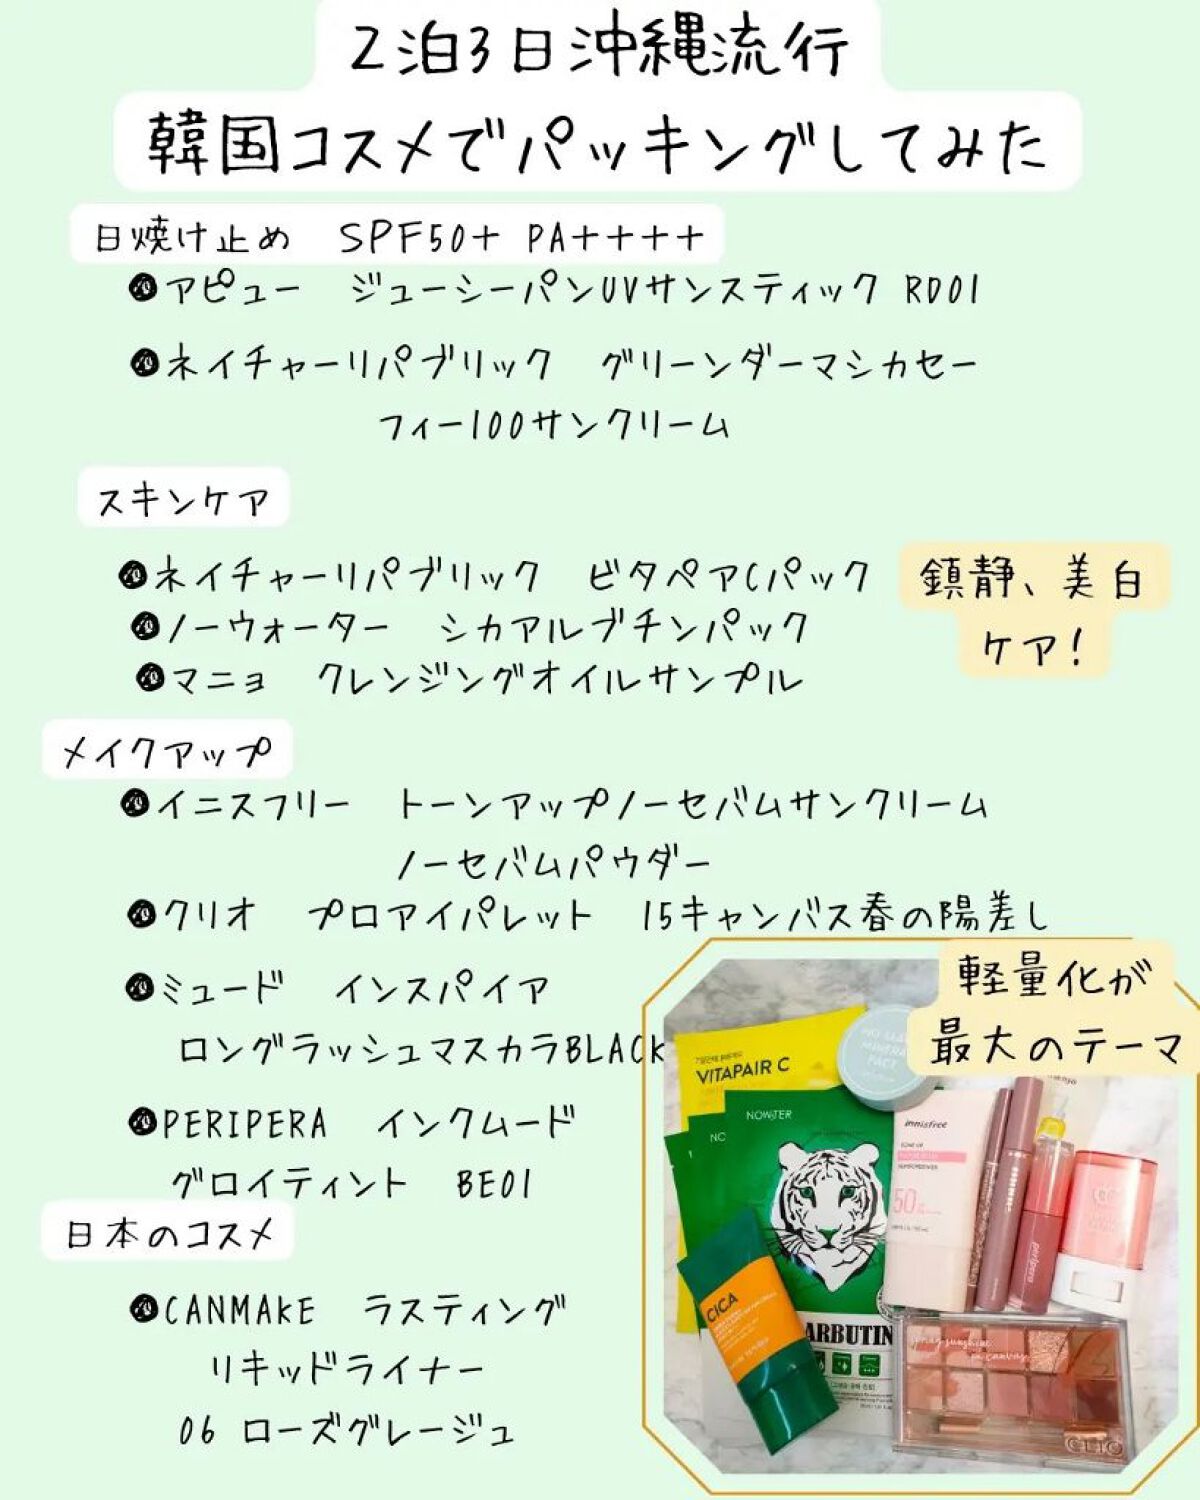 2泊3日沖縄流行
韓国コスメでパッキングしてみた
日焼け止め SPF50+ PA++++
●アピュー ジューシーパンUVサンスティック RD01
●ネイチャーリパブリック グリーンダーマシカセー
フィー100サンクリーム
スキンケア
●ネイチャーリパブリック ビタペアCパック
●ノーウォーター シカアルブチンパック
●マニョ クレンジングオイルサンプル
鎮静、美白
ケア!
メイクアップ
●イニスフリー トーンアップノーセバムサンクリーム
ノーセバムパウダー
●クリオ プロアイパレット 15キャンバス春の陽差し
●ミュード インスパイア
ロングラッシュマスカラBLACK
●PERIPERA インクムード
グロイティント BE01
日本のコスメ
●CANMAKE ラスティング
リキッドライナー
06 ローズグレージュ
軽量化が
最大のテーマ
VITAPAIR C
NOWATER
NO
innisfree
50
peripera
CICA
ARBUTIN
CLIO